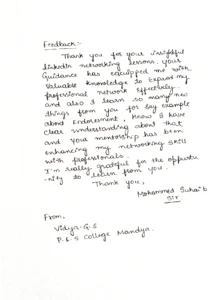 Feedback:-
Thank you for your insightful
linkedin networking lessons, your
Guidance has equipped me with
valuable knowledge to Expand my
professional network effectively
and also I learn so many new
things from you for Eg example
about Endorsement, Know I have
clear understanding about that
and Your mentorship has been
enhancing my networking skill
with professionals.
I'm really grateful for the opportu
-nity to learn from you.
Thank you,
Mohammed Suhaib
sir
From,
Vidya-G.S
P.E.S College Mandya.